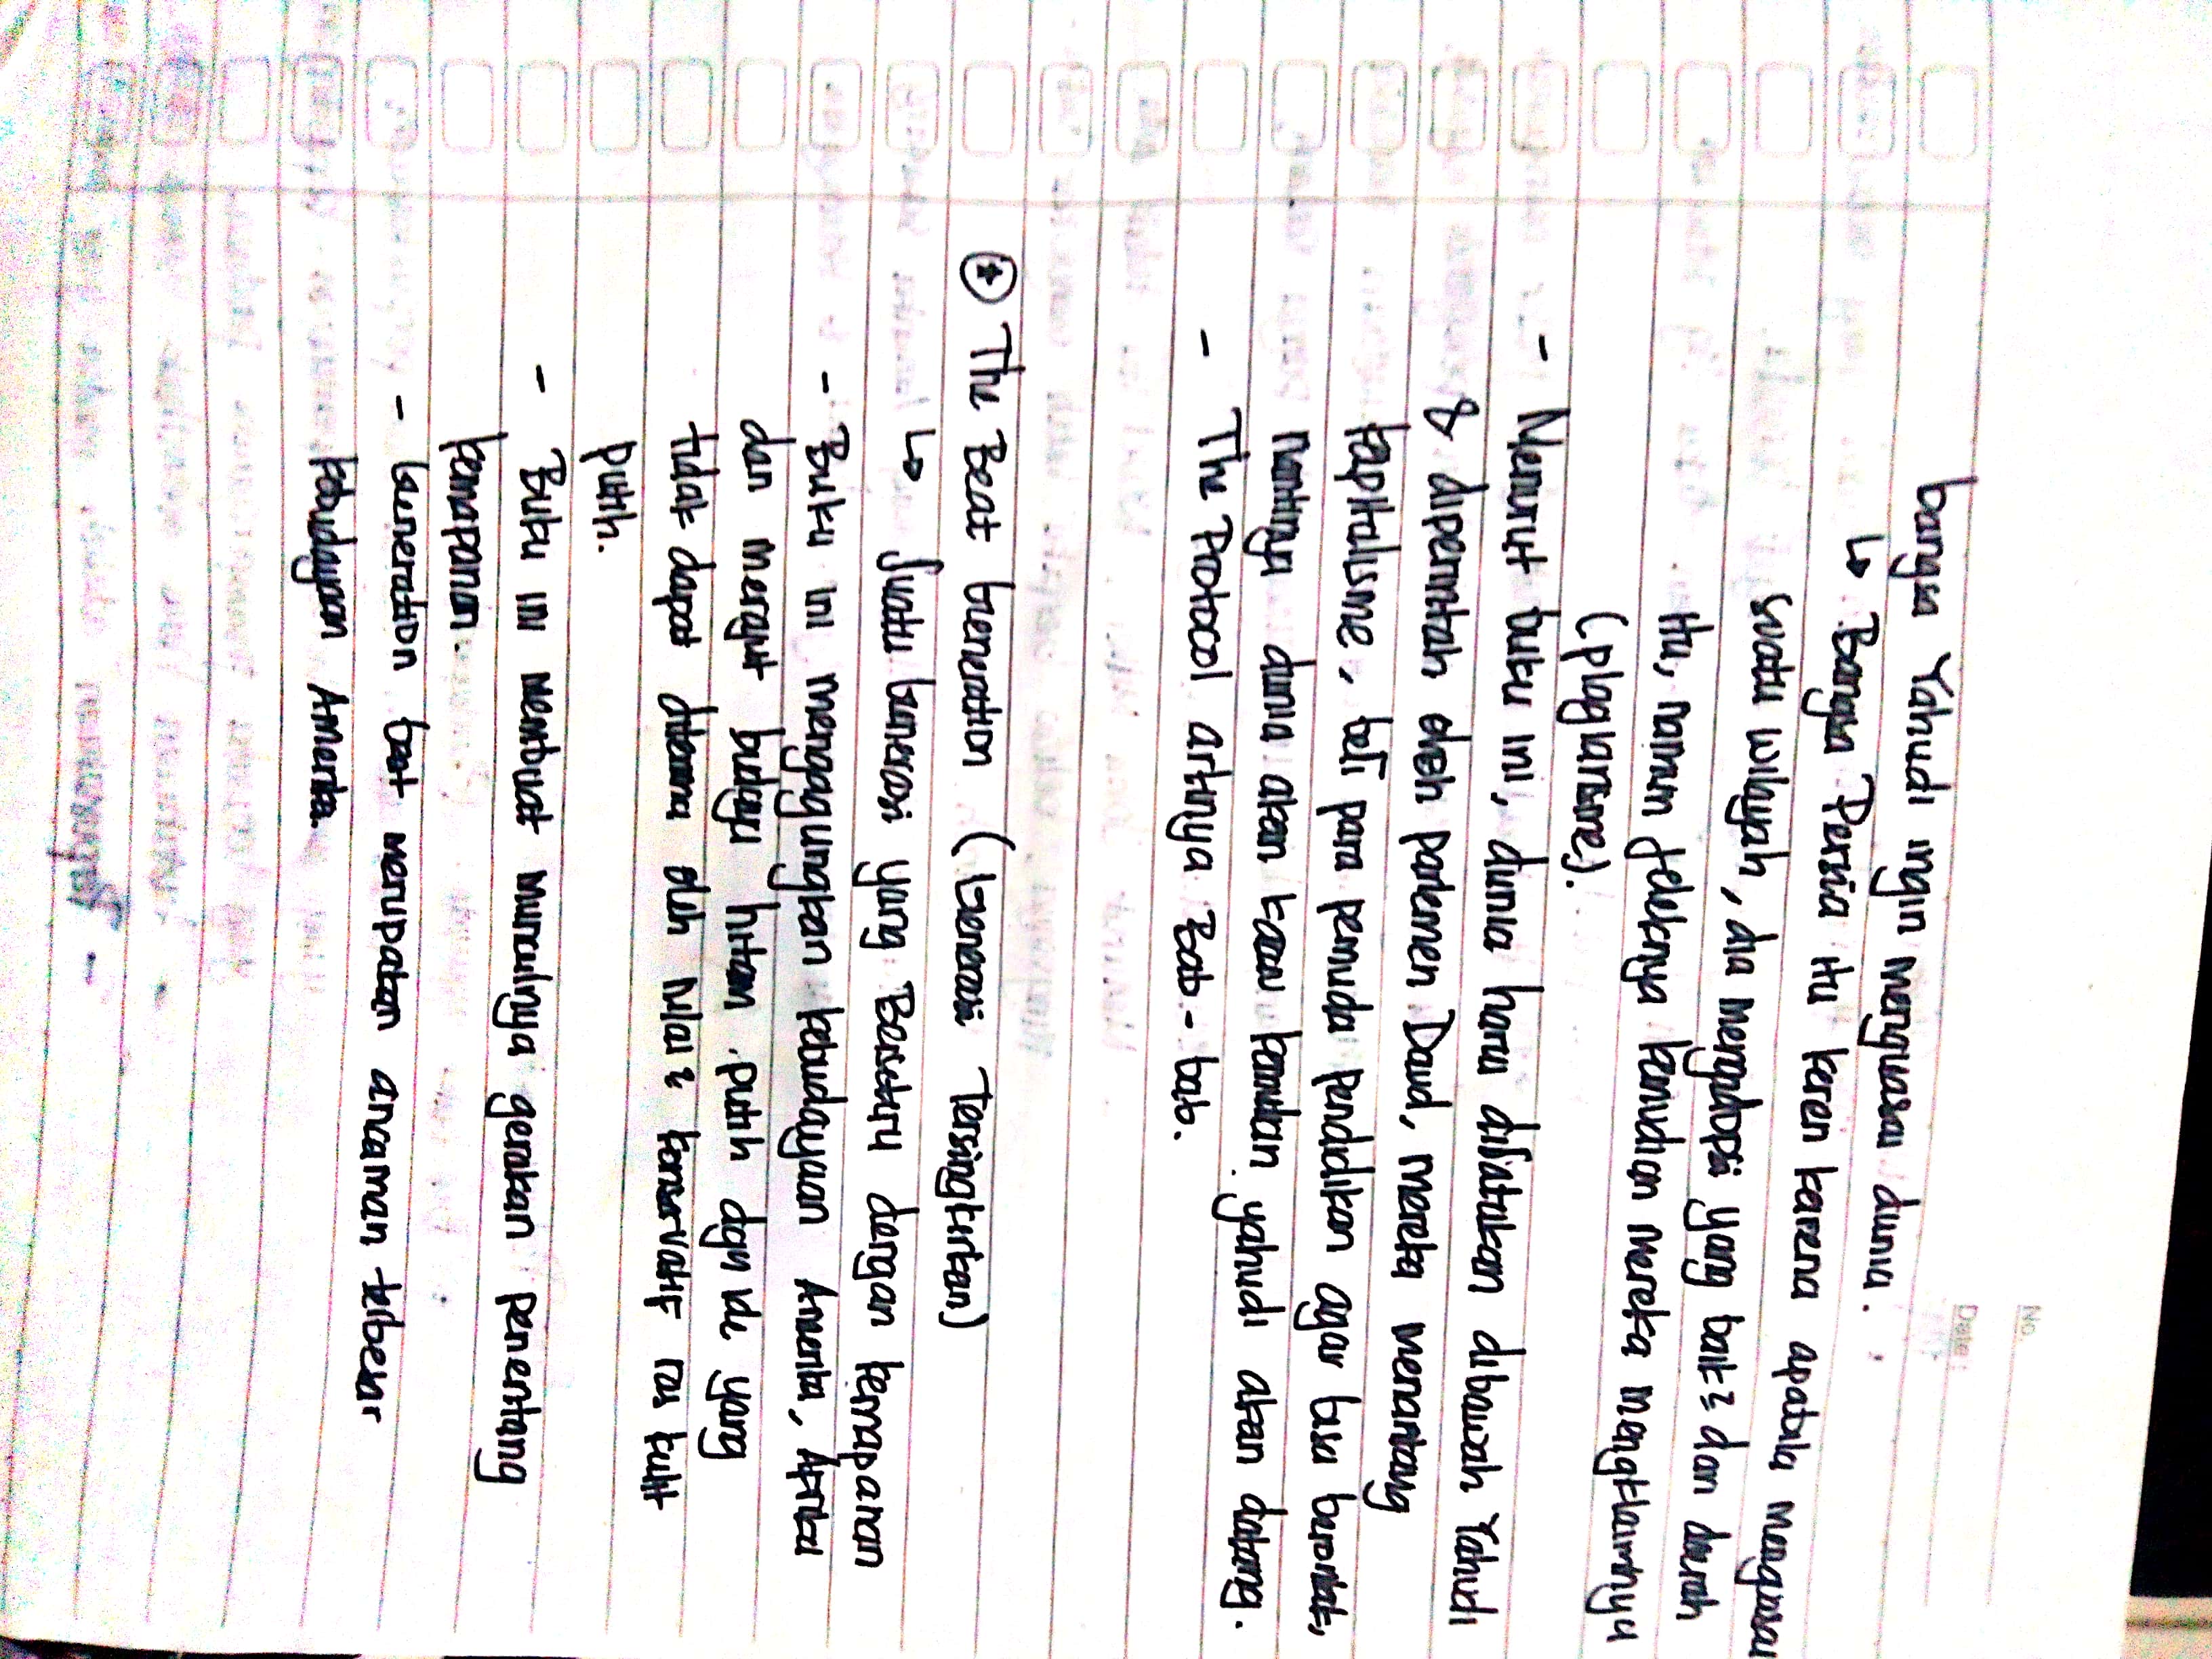 No.
Date:
bangsa Yahudi ingin menguasai dunia.
↳ Bangsa Persia itu keren karena apabila menguasai
suatu wilayah, dia mengadopsi yang baik² dan daerah
itu, namun jeleknya kemudian mereka mengklaimnya
(plagiarisme).
- Menurut buku ini, dunia harus disatukan dibawah Yahudi
& diperintah oleh parlemen Daud, mereka menantang
kapitalisme, beri para pemuda pendidikan agar bisa berontak,
nantinya dunia akan kacau kemudian yahudi akan datang.
- The Protocol artinya Bab-bab.
⍟ The Beat Generation (Generasi Tersingkirkan)
↳ Suatu Generasi yang Berseteru dengan kemapanan
- Buku ini mengagungkan kebudayaan Amerika, Afrika
dan merajut budaya hitam putih dgn ide yang
tidak dapat diterima oleh nilai² konservatif ras kulit
putih.
- Buku ini membuat munculnya gerakan penentang
kemapanan.
- Generation beat merupakan ancaman terbesar
kebudayaan Amerika.